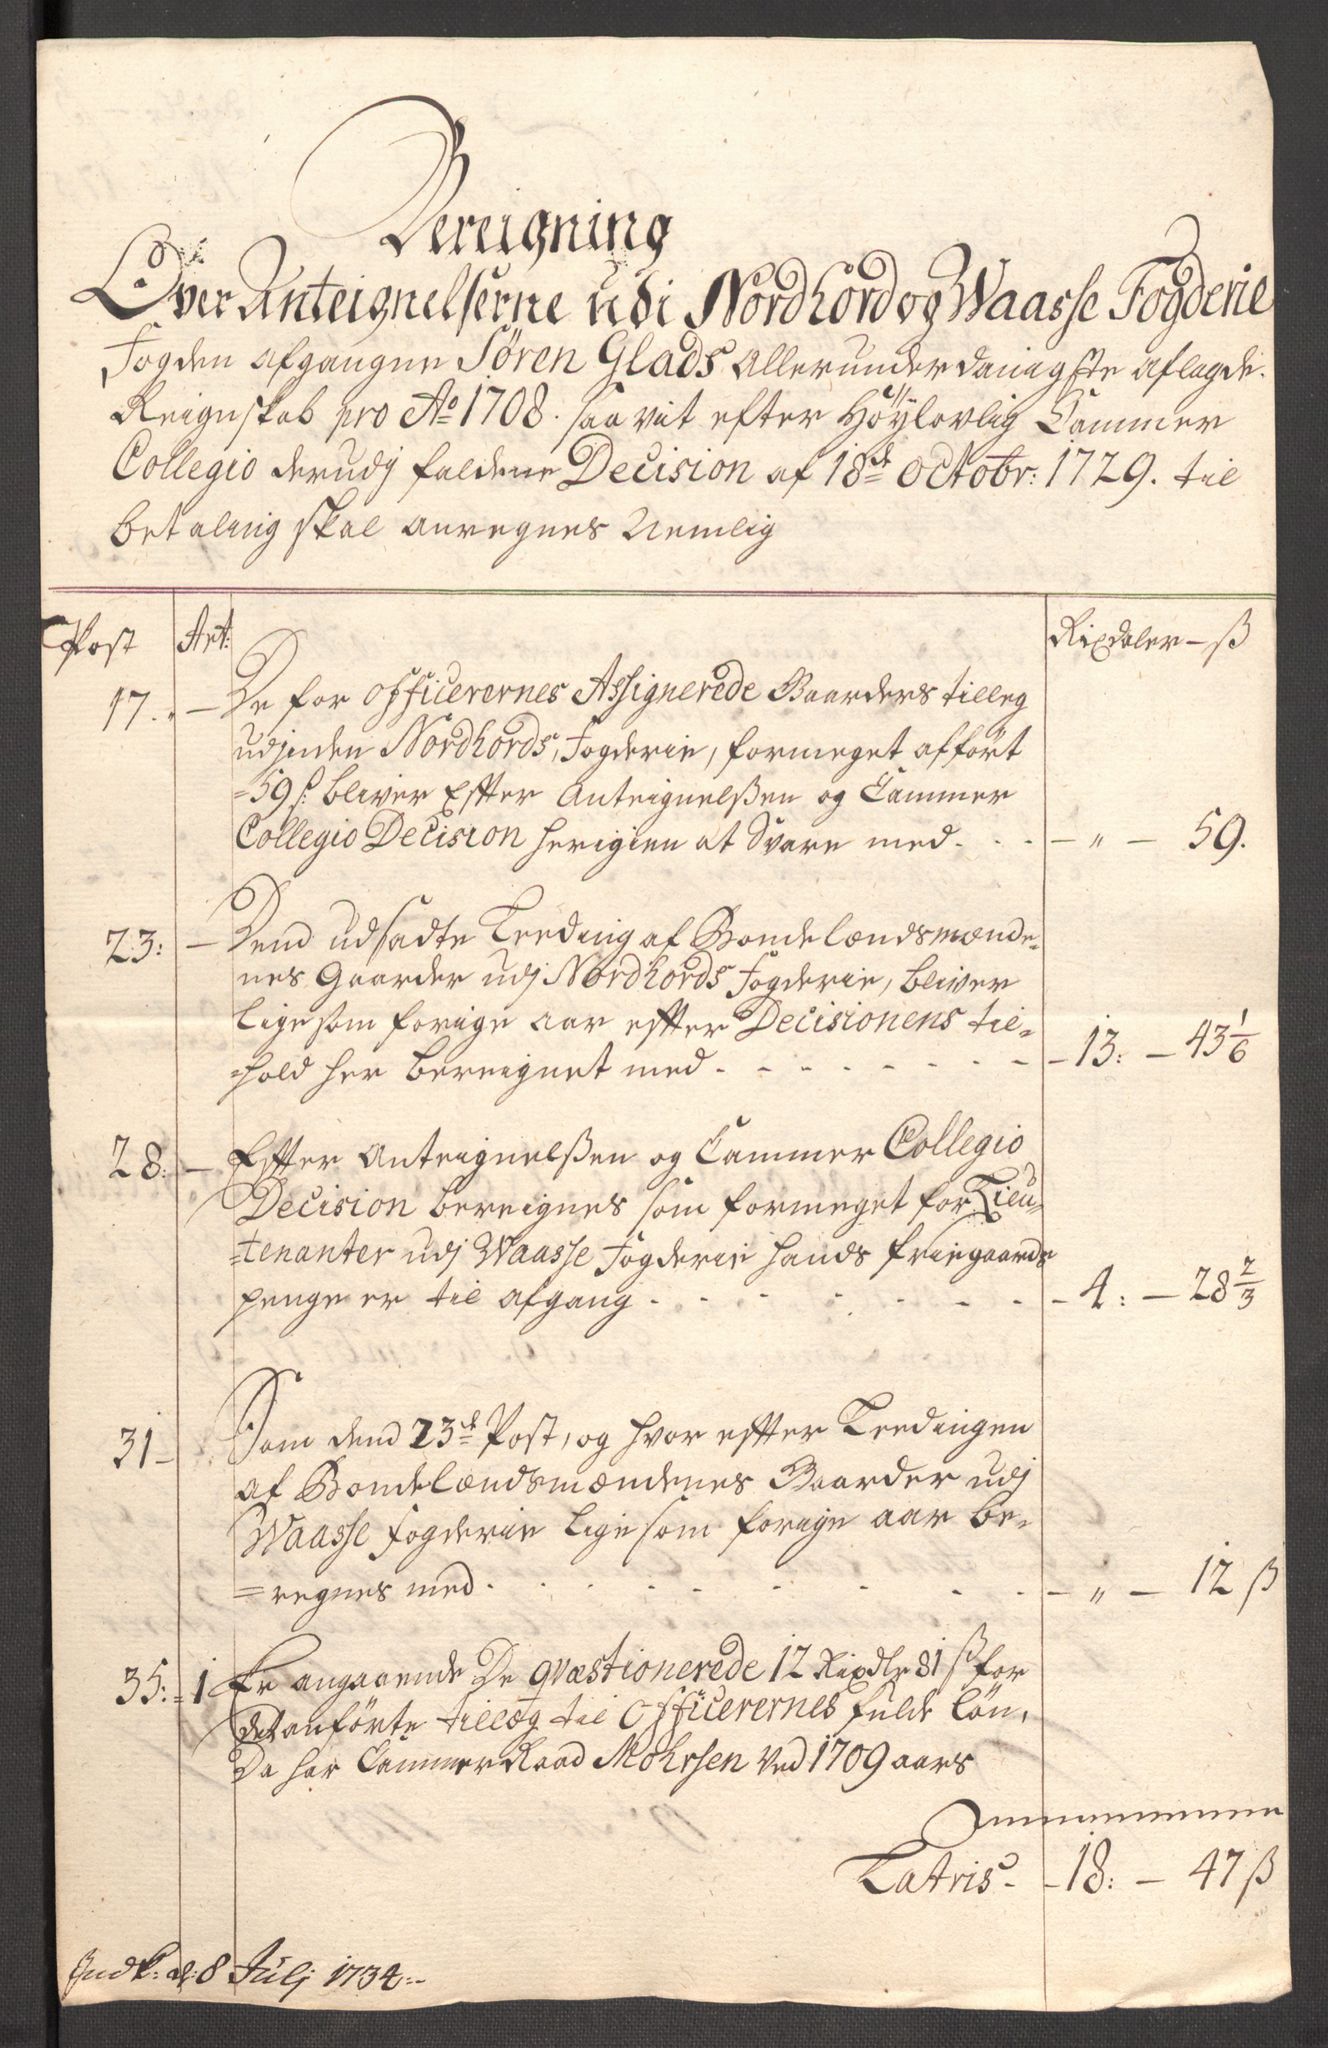 Bereigning
Over Anteignelserne udi Nordhord og Waasse Fogderie
Fogden afgangne Søren Glads allerunderdanigste aflagde
Reignskab pro Ao 1708. saavit efter Høylovlig Cammer
Collegio derudj faldene Decision af 18de Octobr: 1729. til
betaling skal anregnes Nemlig
Post Art: Rixdaler – ß
17. – De for Officerernes Assignerede Gaarders tilleg
udj inden Nordhords, Fogderie, formeget afført
59 ß: bliver Effter Anteignelßen og Cammer
Collegio Decision herigien at Svare med. . . – " – 59.
23: – Dend udsadte Leeding af Bondelændsmænde-
nes Gaarder udj Nordhords Fogderie, bliver
ligesom forige aar effter Decisionens til-
=hold her bereignet med . . . . . . . – 13: – 43 1/6
28: – Effter Anteignelßen og Cammer Collegio
Decision bereignes som formeget for Lieu-
=tenanter udj Waasse Fogderie hands friegaards
penge er til afgang . . . . . . . – 4: – 28 2/3
31 – Som dend 23de Post, og hvor effter Leedingen
af Bondelændsmændenes Gaarder udj
Waasse fogderie ligesom forige aar be-
=regnes med . . . . . . . – " – 12 ß
35: – 1 Er angaaende De qvæstionerede 12 Rixdlr 81 ß for
det anførte tilleg til Officerernes fulde Løn,
Da har Cammer Raad Mohrsen Ved 1709 aars
Latris – 18: – 47 ß
Indk: d: 8 Julj 1734:-